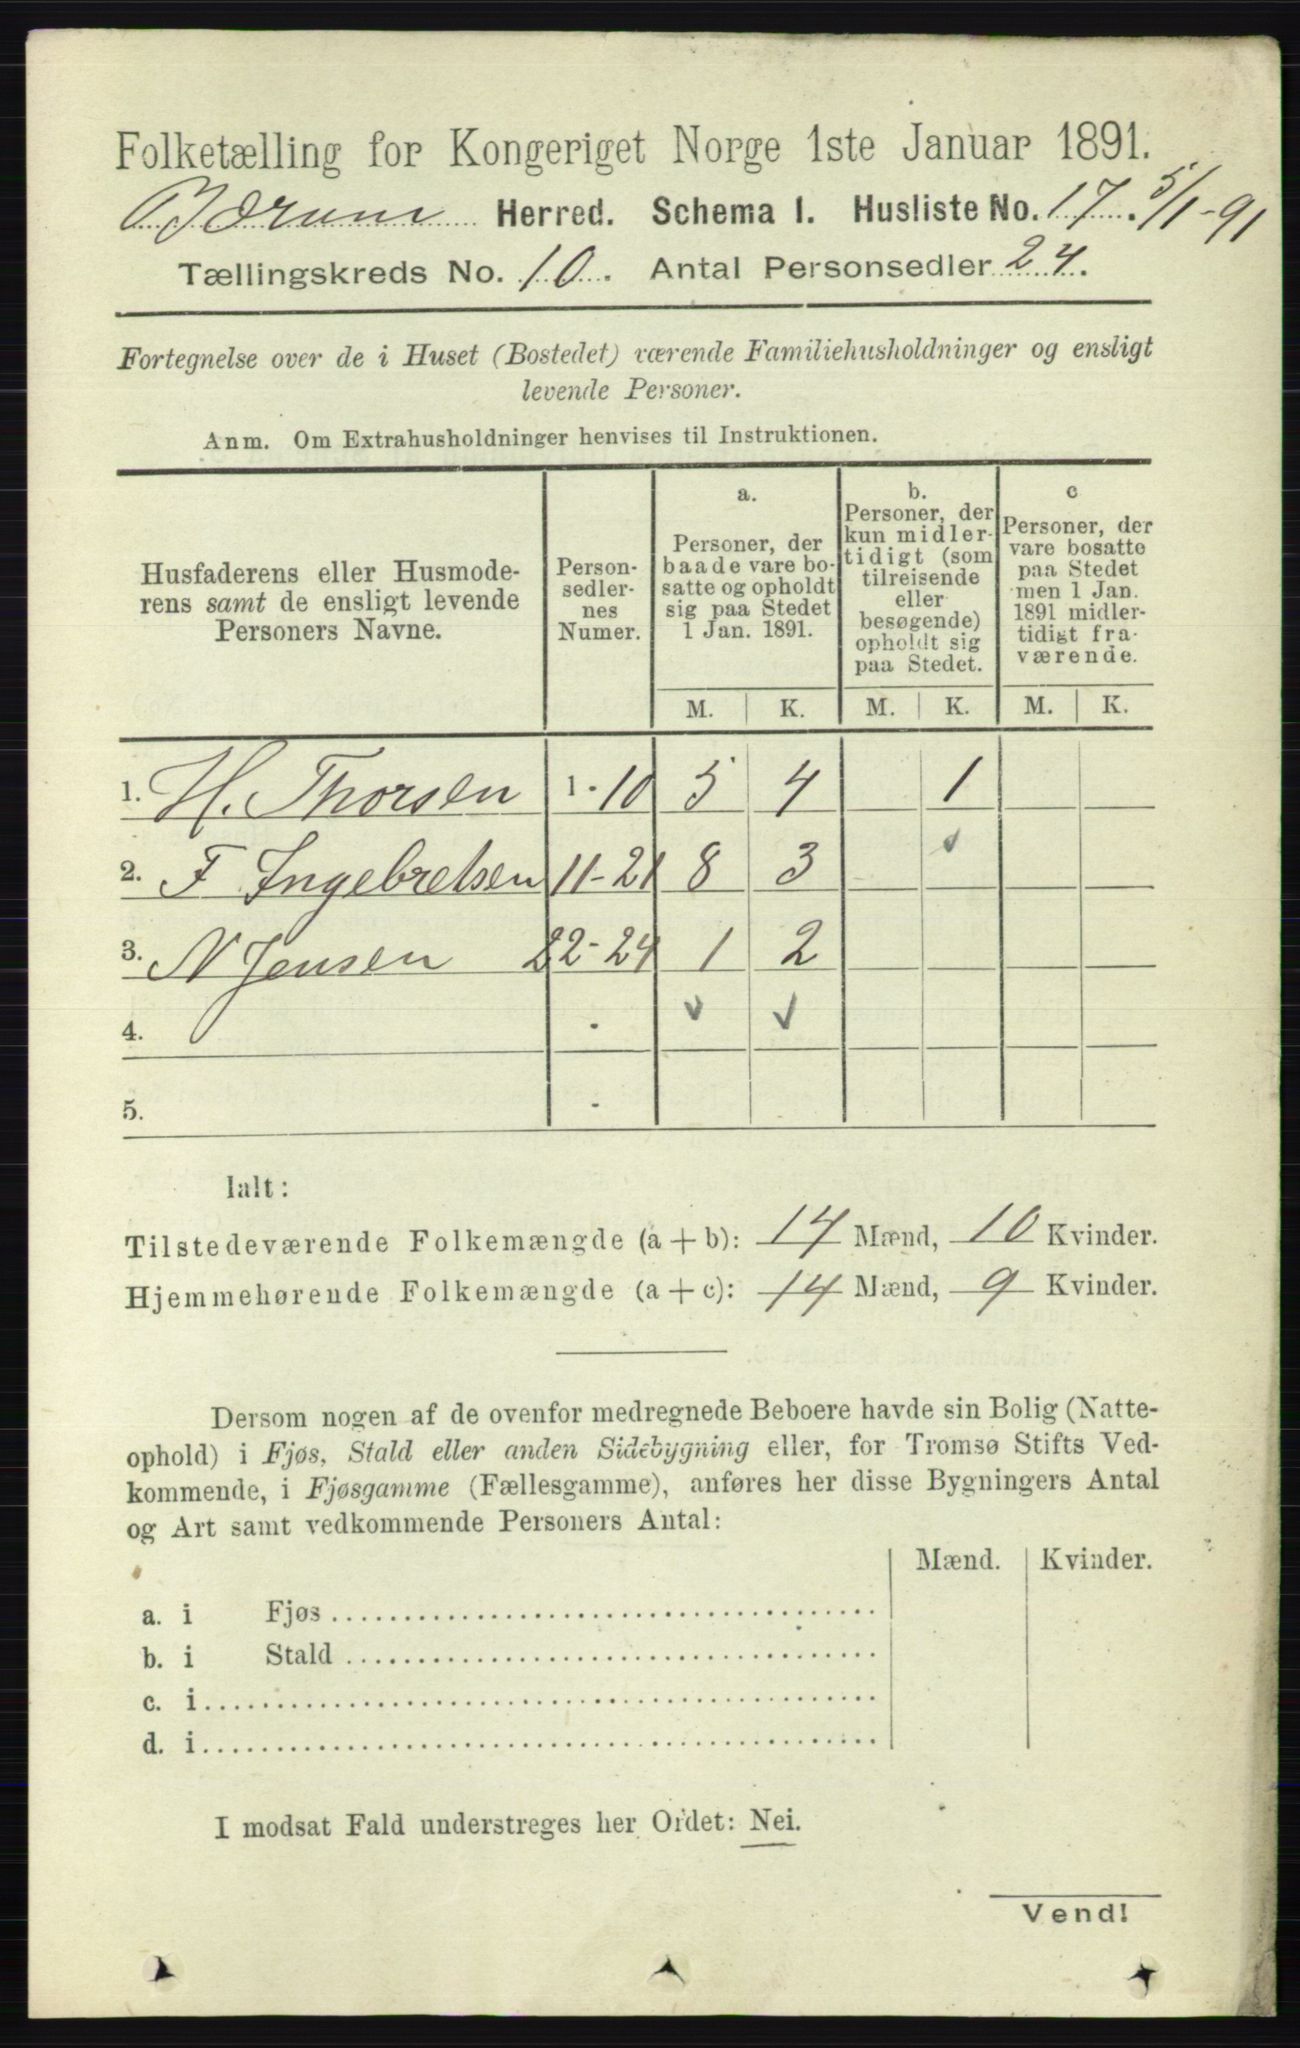 Folketælling for Kongeriget Norge 1ste Januar 1891.
Bærum Herred. Schema I. Husliste No. 17. 5/1-91
Tællingskreds No. 10. Antal Personsedler 24.
Fortegnelse over de i Huset (Bostedet) værende Familiehusholdninger og ensligt
levende Personer.
Anm. Om Extrahusholdninger henvises til Instruktionen.
Husfaderens eller Husmode-
rens samt de ensligt levende
Personers Navne.
Person-
sedler-
nes
Numer.
a.
Personer, der
baade vare bo-
satte og opholdt
sig paa Stedet
1 Jan. 1891.
b.
Personer, der
kun midler-
tidigt (som
tilreisende
eller
besøgende)
opholdt sig
paa Stedet.
c
Personer, der
vare bosatte
paa Stedet
men 1 Jan.
1891 midler-
tidigt fra-
værende.
M. K. M. K. M. K.
1. H. Thorsen 1-10 5 4 1
2. F Ingebretsen 11-21 8 3
3. N Jensen 22-24 1 2
4.
5.
Ialt:
Tilstedeværende Folkemængde (a + b): 14 Mænd, 10 Kvinder.
Hjemmehørende Folkemængde (a + c): 14 Mænd, 9 Kvinder.
Dersom nogen af de ovenfor medregnede Beboere havde sin Bolig (Natte-
ophold) i Fjøs, Stald eller anden Sidebygning eller, for Tromsø Stifts Ved-
kommende, i Fjøsgamme (Fællesgamme), anføres her disse Bygningers Antal
og Art samt vedkommende Personers Antal:
Mænd. Kvinder.
a. i Fjøs
b. i Stald
c. i
d. i
I modsat Fald understreges her Ordet: Nei.
Vend!